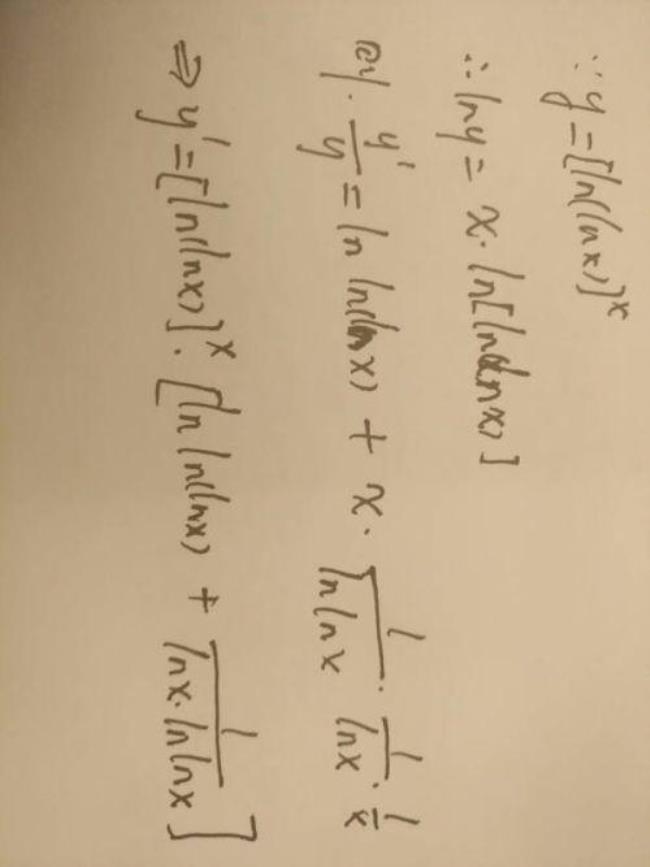 ∵ y = [ln(lnx)]^x
∴ lny = x · ln[ln(lnx)]
则 · y'/y = ln ln(lnx) + x · 1/(ln lnx) · 1/(lnx) · 1/x
⇒ y' = [ln(lnx)]^x · [ln ln(lnx) + 1/(lnx · ln lnx)]